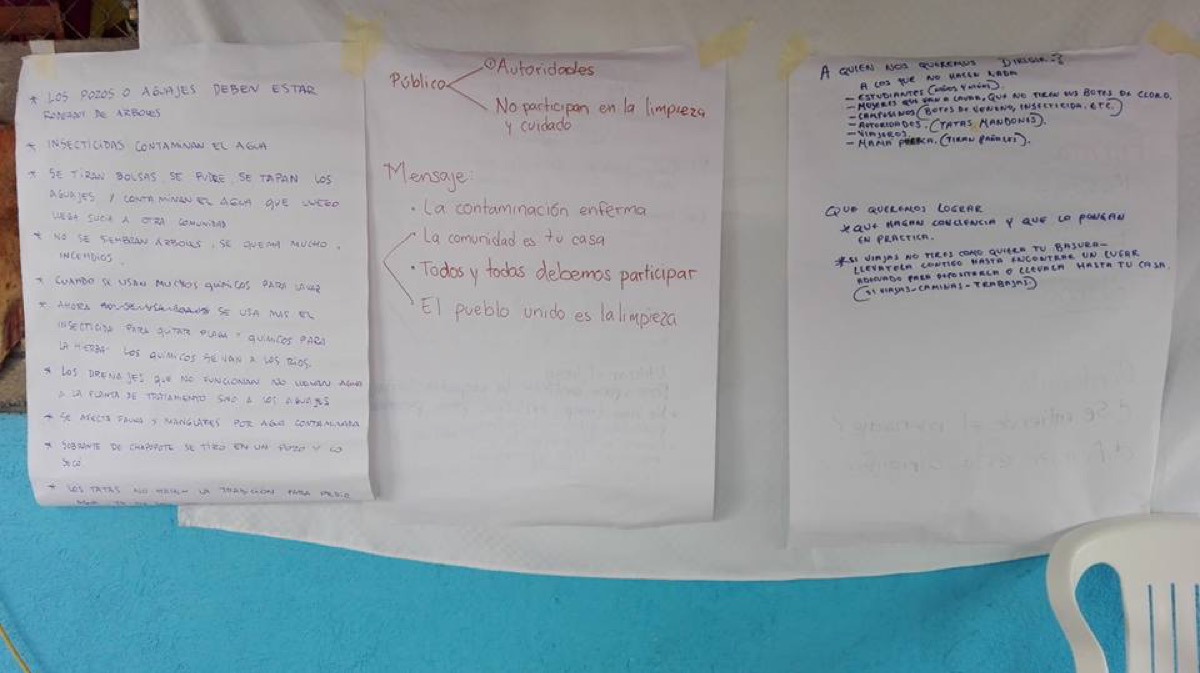 * LOS POZOS O AGUAJES DEBEN ESTAR
RODEADOS DE ARBOLES
* INSECTICIDAS CONTAMINAN EL AGUA
* SE TIRAN BOLSAS, SE PUDRE, SE TAPAN LOS
AGUAJES Y CONTAMINAN EL AGUA QUE LUEGO
LLEGA SUCIA A OTRA COMUNIDAD
* NO SE SIEMBRAN ARBOLES, SE QUEMA MUCHO,
INCENDIOS.
* CUANDO SE USAN MUCHOS QUIMICOS PARA LAVAR
* AHORA SE USA MAS EL
INSECTICIDA PARA QUITAR PLAGA Y QUIMICOS PARA
LA HIERBA. LOS QUIMICOS SE VAN A LOS RIOS.
* LOS DRENAJES QUE NO FUNCIONAN NO LLEVAN AGUA
A LA PLANTA DE TRATAMIENTO SINO A LOS AGUAJES
* SE AFECTA FAUNA Y MANGLARES POR AGUA CONTAMINADA
* SOBRANTE DE CHAPOPOTE SE TIRO EN UN POZO Y LO
SECÓ
* LOS TATAS NO LA TRADICION PARA PEDIR
Público
① Autoridades
No participan en la limpieza
y cuidado
Mensaje:
· La contaminación enferma
· La comunidad es tu casa
· Todos y todas debemos participar
El pueblo unido es la limpieza
A QUIEN NOS QUEREMOS DIRIGIR:?
A LOS QUE NO HACEN NADA
- ESTUDIANTES (NIÑOS Y NIÑAS).
- MUJERES QUE VAN A LAVAR, QUE NO TIREN SUS BOTES DE CLORO.
- CAMPESINOS (BOTES DE VENENO, INSECTICIDA, ETC.)
- AUTORIDADES. (TATAS MANDONES).
- VIAJEROS.
- MAMÁ (TIRAN PAÑALES).
QUE QUEREMOS LOGRAR
* QUE HAGAN CONCIENCIA Y QUE LO PONGAN
EN PRACTICA.
* SI VIAJAS NO TIRES COMO QUIERA TU BASURA-
LLEVATELA CONTIGO HASTA ENCONTRAR UN LUGAR
ADECUADO PARA DEPOSITARLA O LLEVALA HASTA TU CASA.
(SI VIAJAS-CAMINAS-TRABAJAS.)